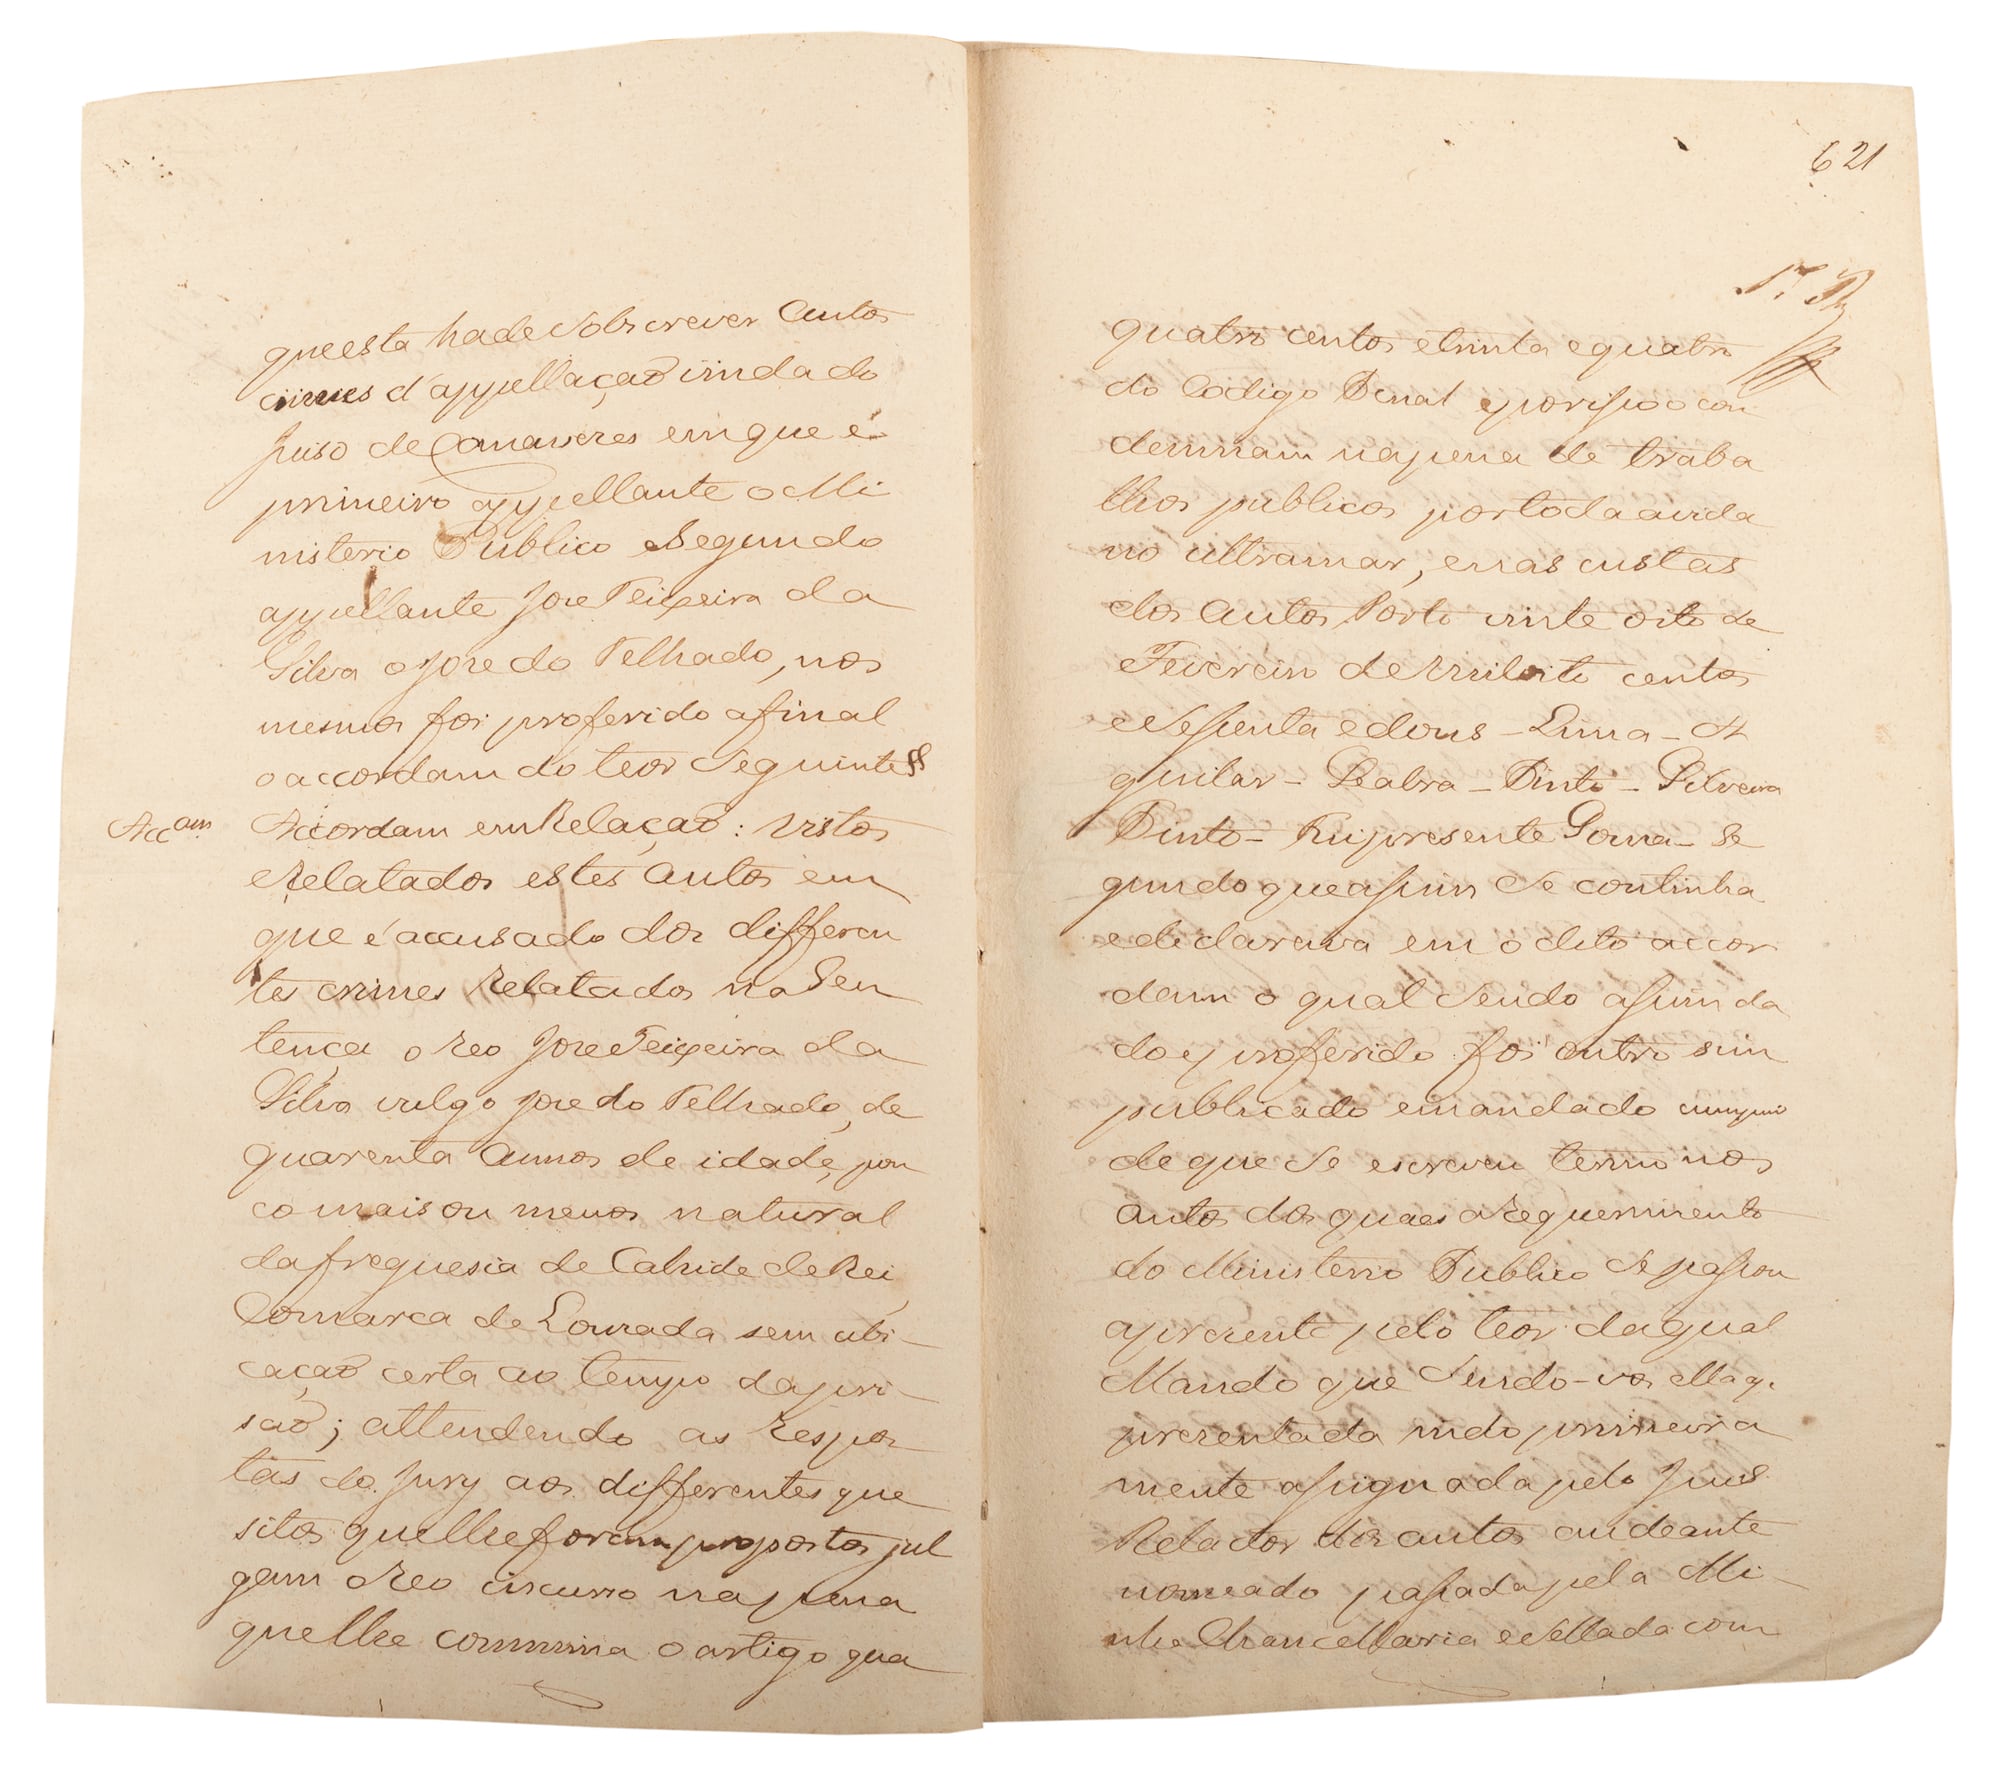 que esta hade sobscrever Autos
crimes d'appellação vinda do
Juiso de Canavezes em que é
primeiro appellante o Mi
nisterio Publico e Segundo
appellante Jose Teixeira da
Silva o Jose do Telhado, nos
mesmos foi proferido afinal
o accordam do teor Seguinte SS
Acc.am
Accordam em Relação: vistos
e Relatados estes Autos em
que é accusado dos differen
tes crimes Relatados na Sen
tença o Reo Jose Teixeira da
Silva vulgo Jose do Telhado, de
quarenta Annos de idade, pou
co mais ou menos natural
da freguesia de Cahide de Rei,
Comarca de Louzada sem abi-
cação certa ao tempo da pri-
são; attendendo as Respos
tas do Jury aos differentes que
sitos que lhe foram propostos jul
gam o Reo incurso na pena
que lhe commina o artigo qua
621
quatro centos e trinta e quatro
do Codigo Penal e por isso o con
demnam na pena de traba
lhos publicos por toda a vida
no ultramar, e nas custas
dos Autos Porto vinte oito de
Fevereiro de mil oito centos
e Sessenta e dous - Lima - A
guilar - Seabra - Pinto - Silveira
Pinto - Fui presente Gouvea - Se
gundo que assim se continha
e declarava em o dito accor
dam o qual Sendo assim da
do e proferido foi outro sim
publicado e mandado cumprir
de que se escreveu termo nos
Autos dos quaes a Requerimento
do Ministerio Publico se passou
a prezente pelo teor da qual
Mando que Sendo-vos ella a
prezentada indo primeira
mente assignada pelo Juiz
Relator dos autos ao deante
nomeado passada pela Mi-
nha Chancellaria e Sellada com